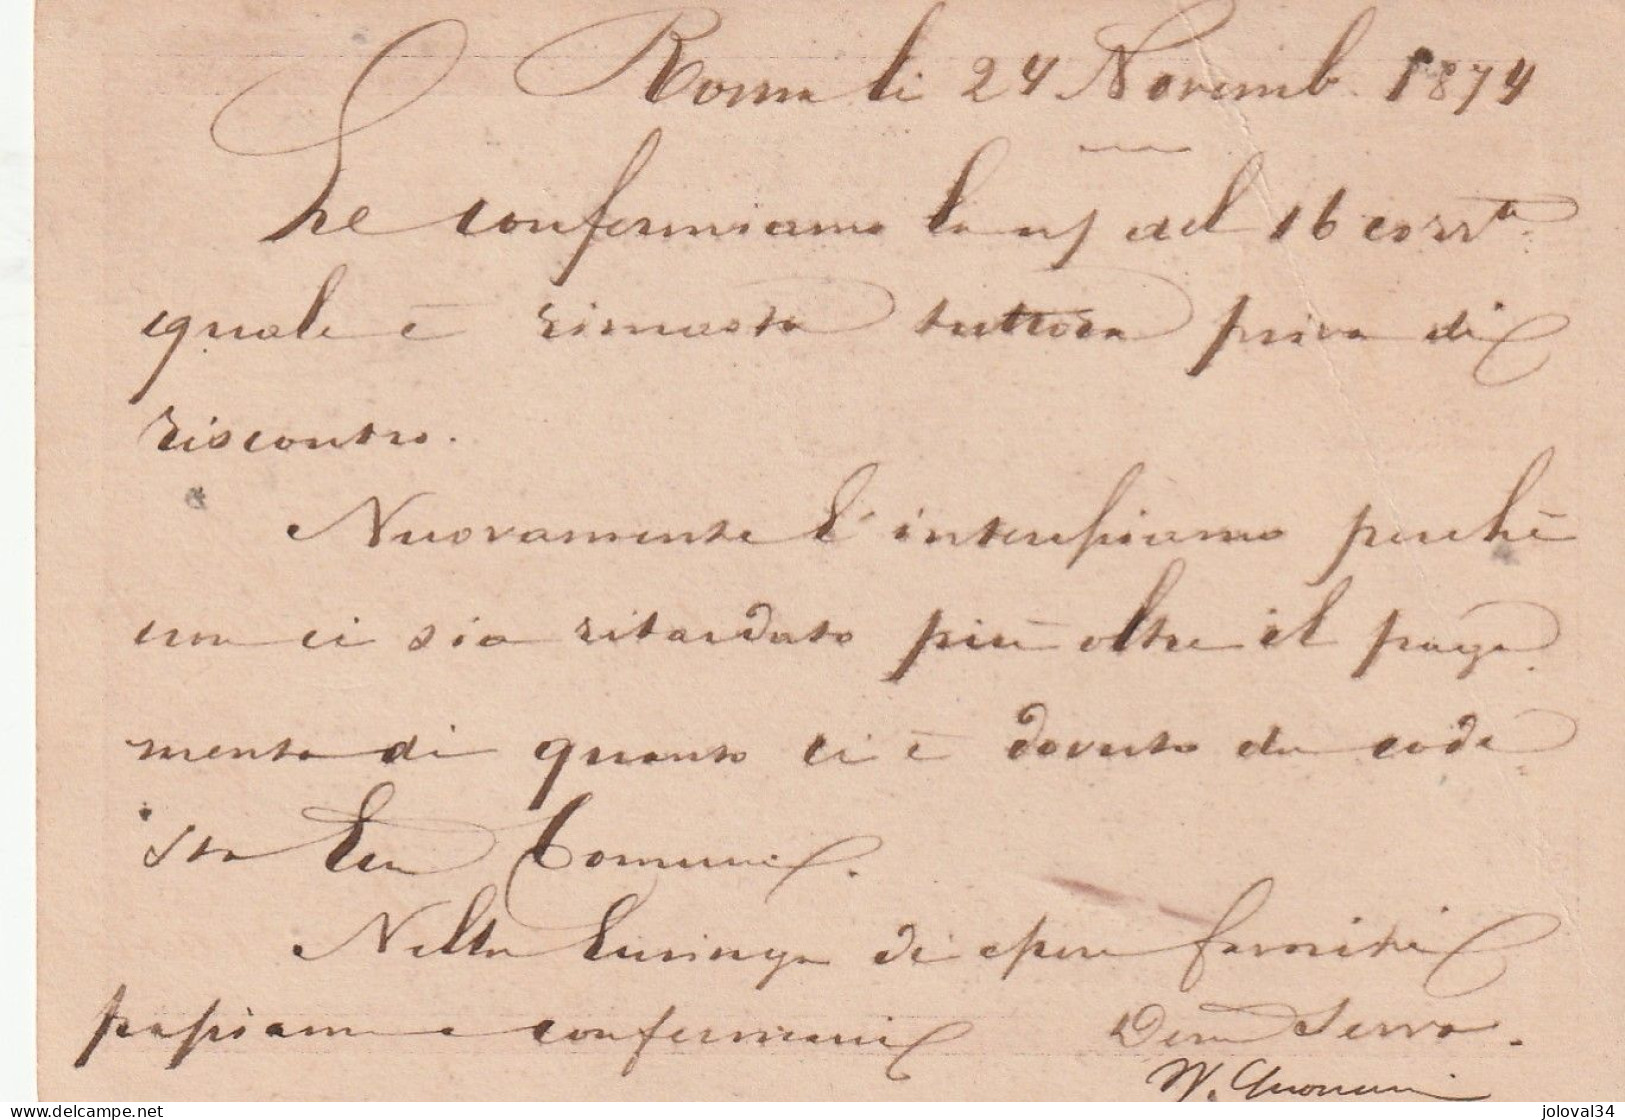 Roma li 24 Novemb. 1874
Le confermiamo la ns/ del 16 corr.te
quale è rimasta tuttora priva di
riscontro.
Nuovamente l'interessiamo perchè
non ci sia ritardato più oltre il paga
mento di quanto ci è dovuto da code
sta Comune.
Nella lusinga di esser favoriti
passiamo a confermarci
Servo.
www.delcampe.net
joloval34